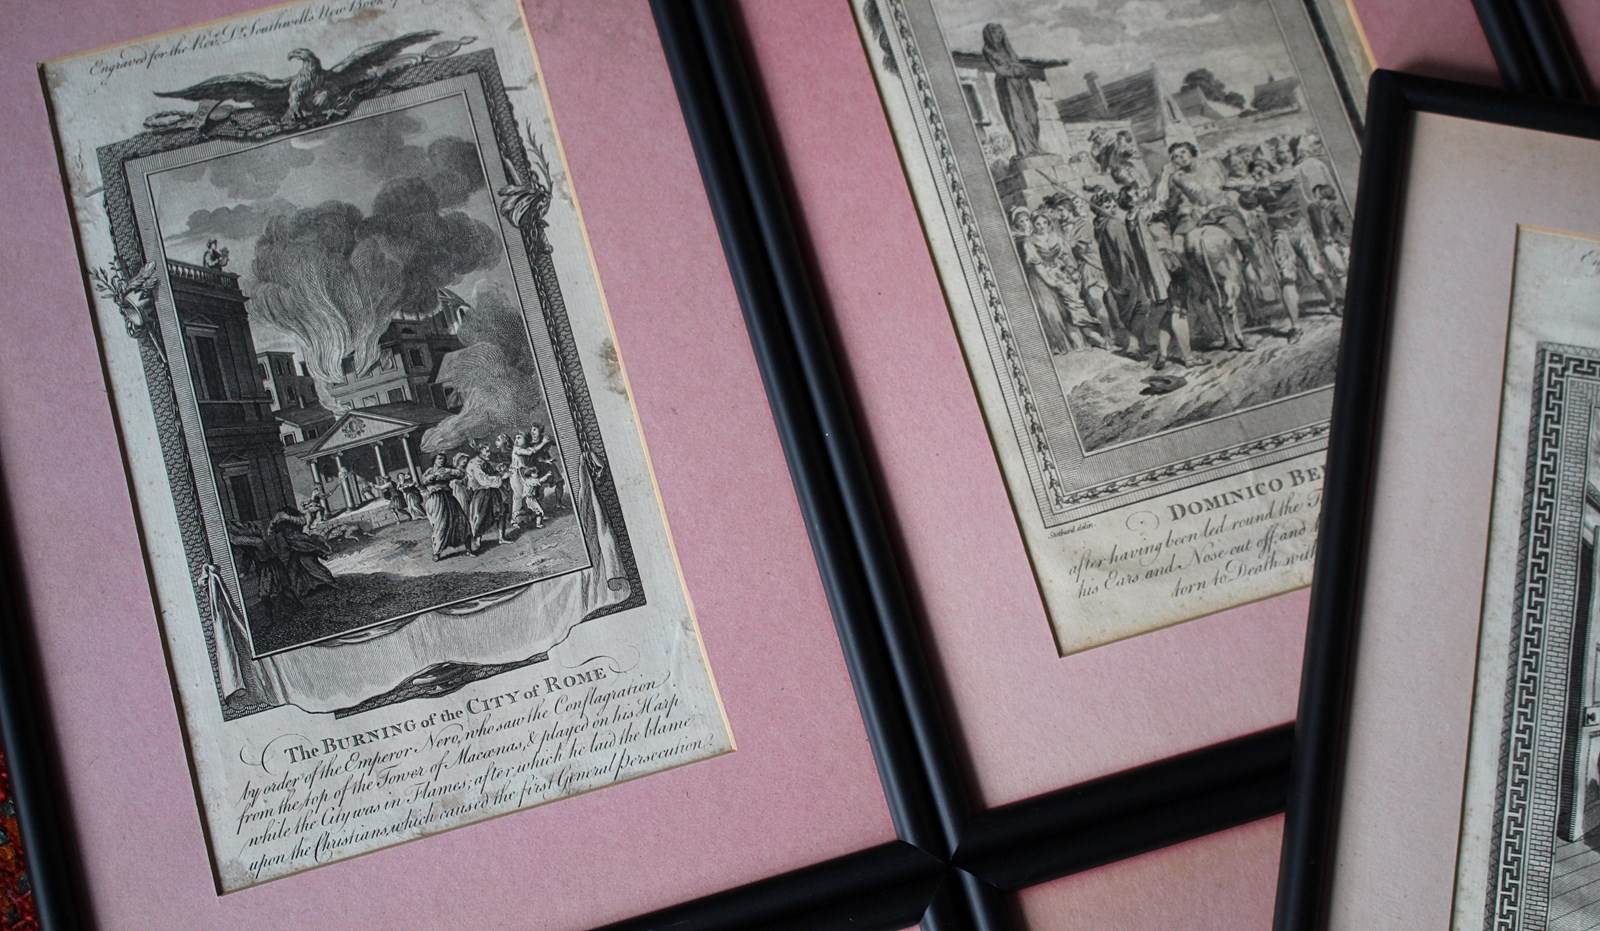 Engraved for the Rev. Dr. Southwell's New Book
The BURNING of the CITY of ROME
by order of the Emperor Nero, who saw the Conflagration
from the top of the Tower of Macænas, & played on his Harp
while the City was in Flames; after which he laid the blame
upon the Christians, which caused the first General Persecution.
Stothard delin.
DOMINICO BE
after having been led round the
his Ears and Nose cut off, and
torn to Death with